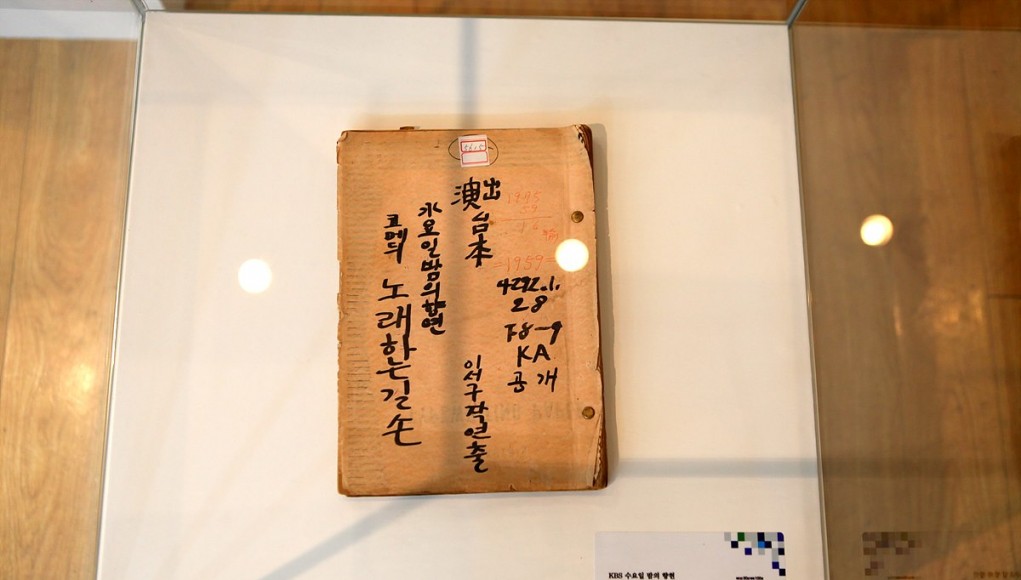 =1959=
4292.1.
28
F8-9
KA
공개
演出
台本
이서구작연출
水요일밤의향연
코메듸 노래하는길손
KBS 수요일 밤의 향연